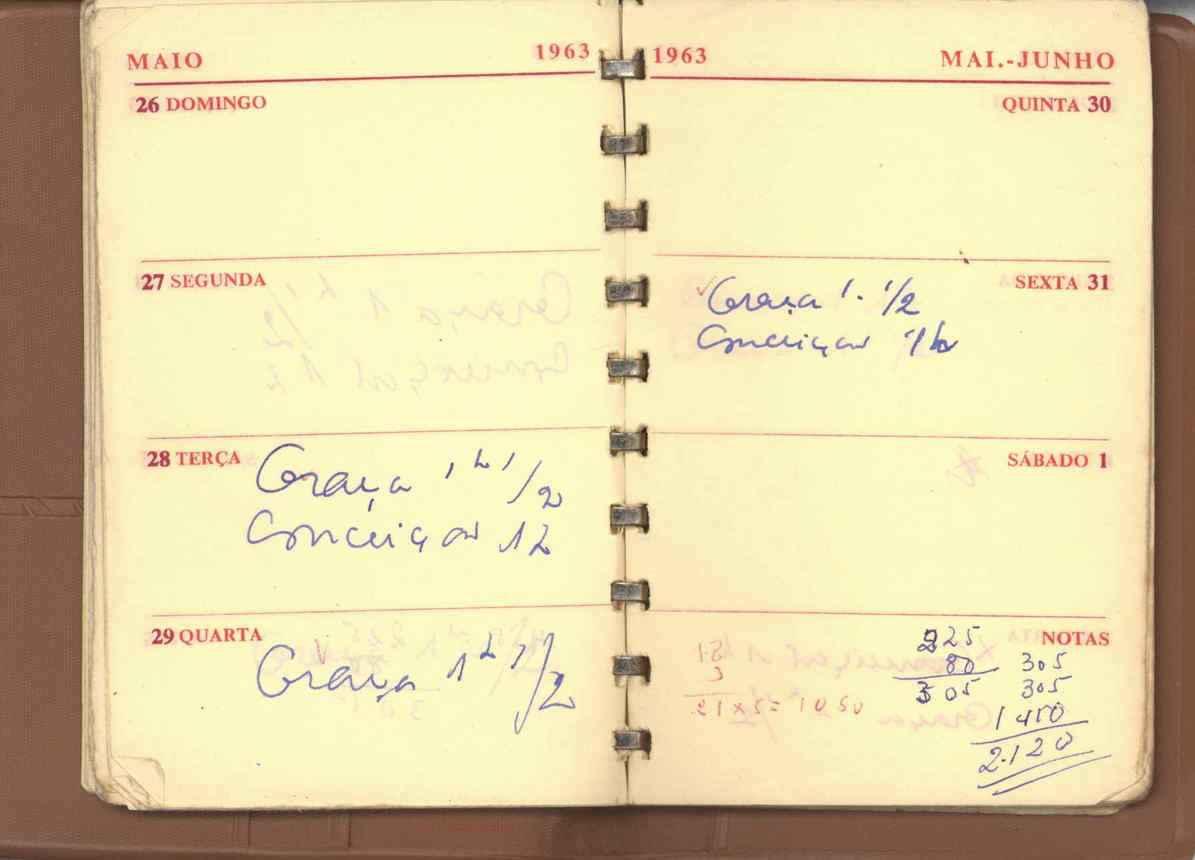 MAIO 1963
26 DOMINGO
27 SEGUNDA
28 TERÇA
Graça 1 h 1/2
Conceição 1 h
29 QUARTA
Graça 1 h 1/2
1963 MAI.-JUNHO
QUINTA 30
SEXTA 31
Graça 1. 1/2
Conceição
SÁBADO 1
NOTAS
225
80
305
305
305
1450
2.120
18
3
21x5=1050